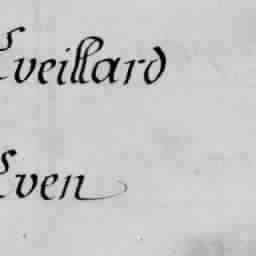 Eveillard
Even